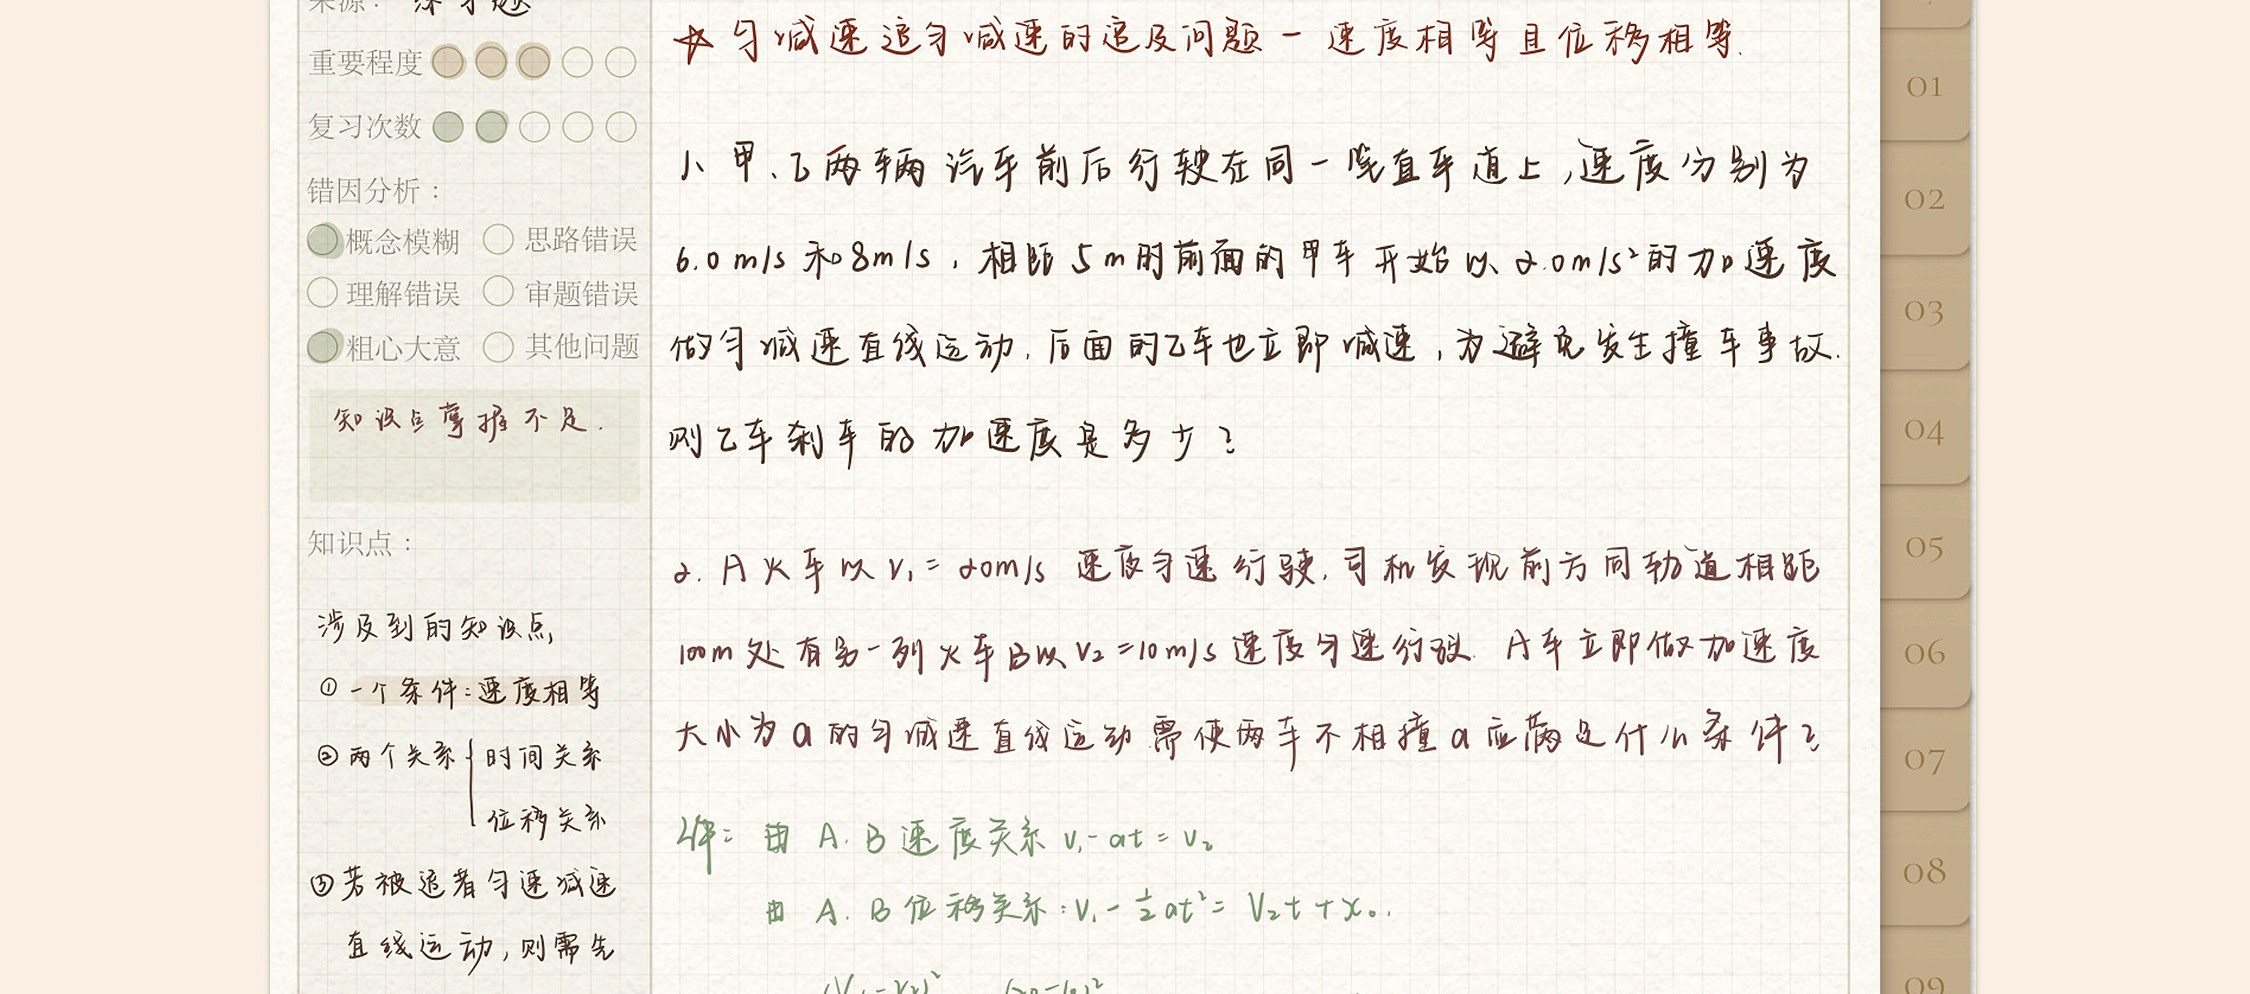 来源：练习题
重要程度
复习次数
错因分析：
概念模糊 思路错误
理解错误 审题错误
粗心大意 其他问题
知识点掌握不足.
知识点：
涉及到的知识点,
①一个条件:速度相等
②两个关系{时间关系
位移关系
③若被追者匀速减速
直线运动,则需先
☆匀减速追匀减速的追及问题－速度相等且位移相等.
1、甲、乙两辆汽车前后行驶在同一笔直车道上,速度分别为
6.0m/s和8m/s,相距5m时前面的甲车开始以2.0m/s²的加速度
做匀减速直线运动,后面的乙车也立即减速,为避免发生撞车事故.
则乙车刹车的加速度是多少?
2.A火车以V₁=20m/s 速度匀速行驶,司机发现前方同轨道相距
100m处有另一列火车B以V₂=10m/s速度匀速行驶. A车立即做加速度
大小为a的匀减速直线运动需使两车不相撞a应满足什么条件?
解: 由A.B速度关系V₁-at=V₂
由A.B位移关系:V₁-½at²=V₂t+X₀.
(V₁-V₂)² (20-10)²
01
02
03
04
05
06
07
08
09